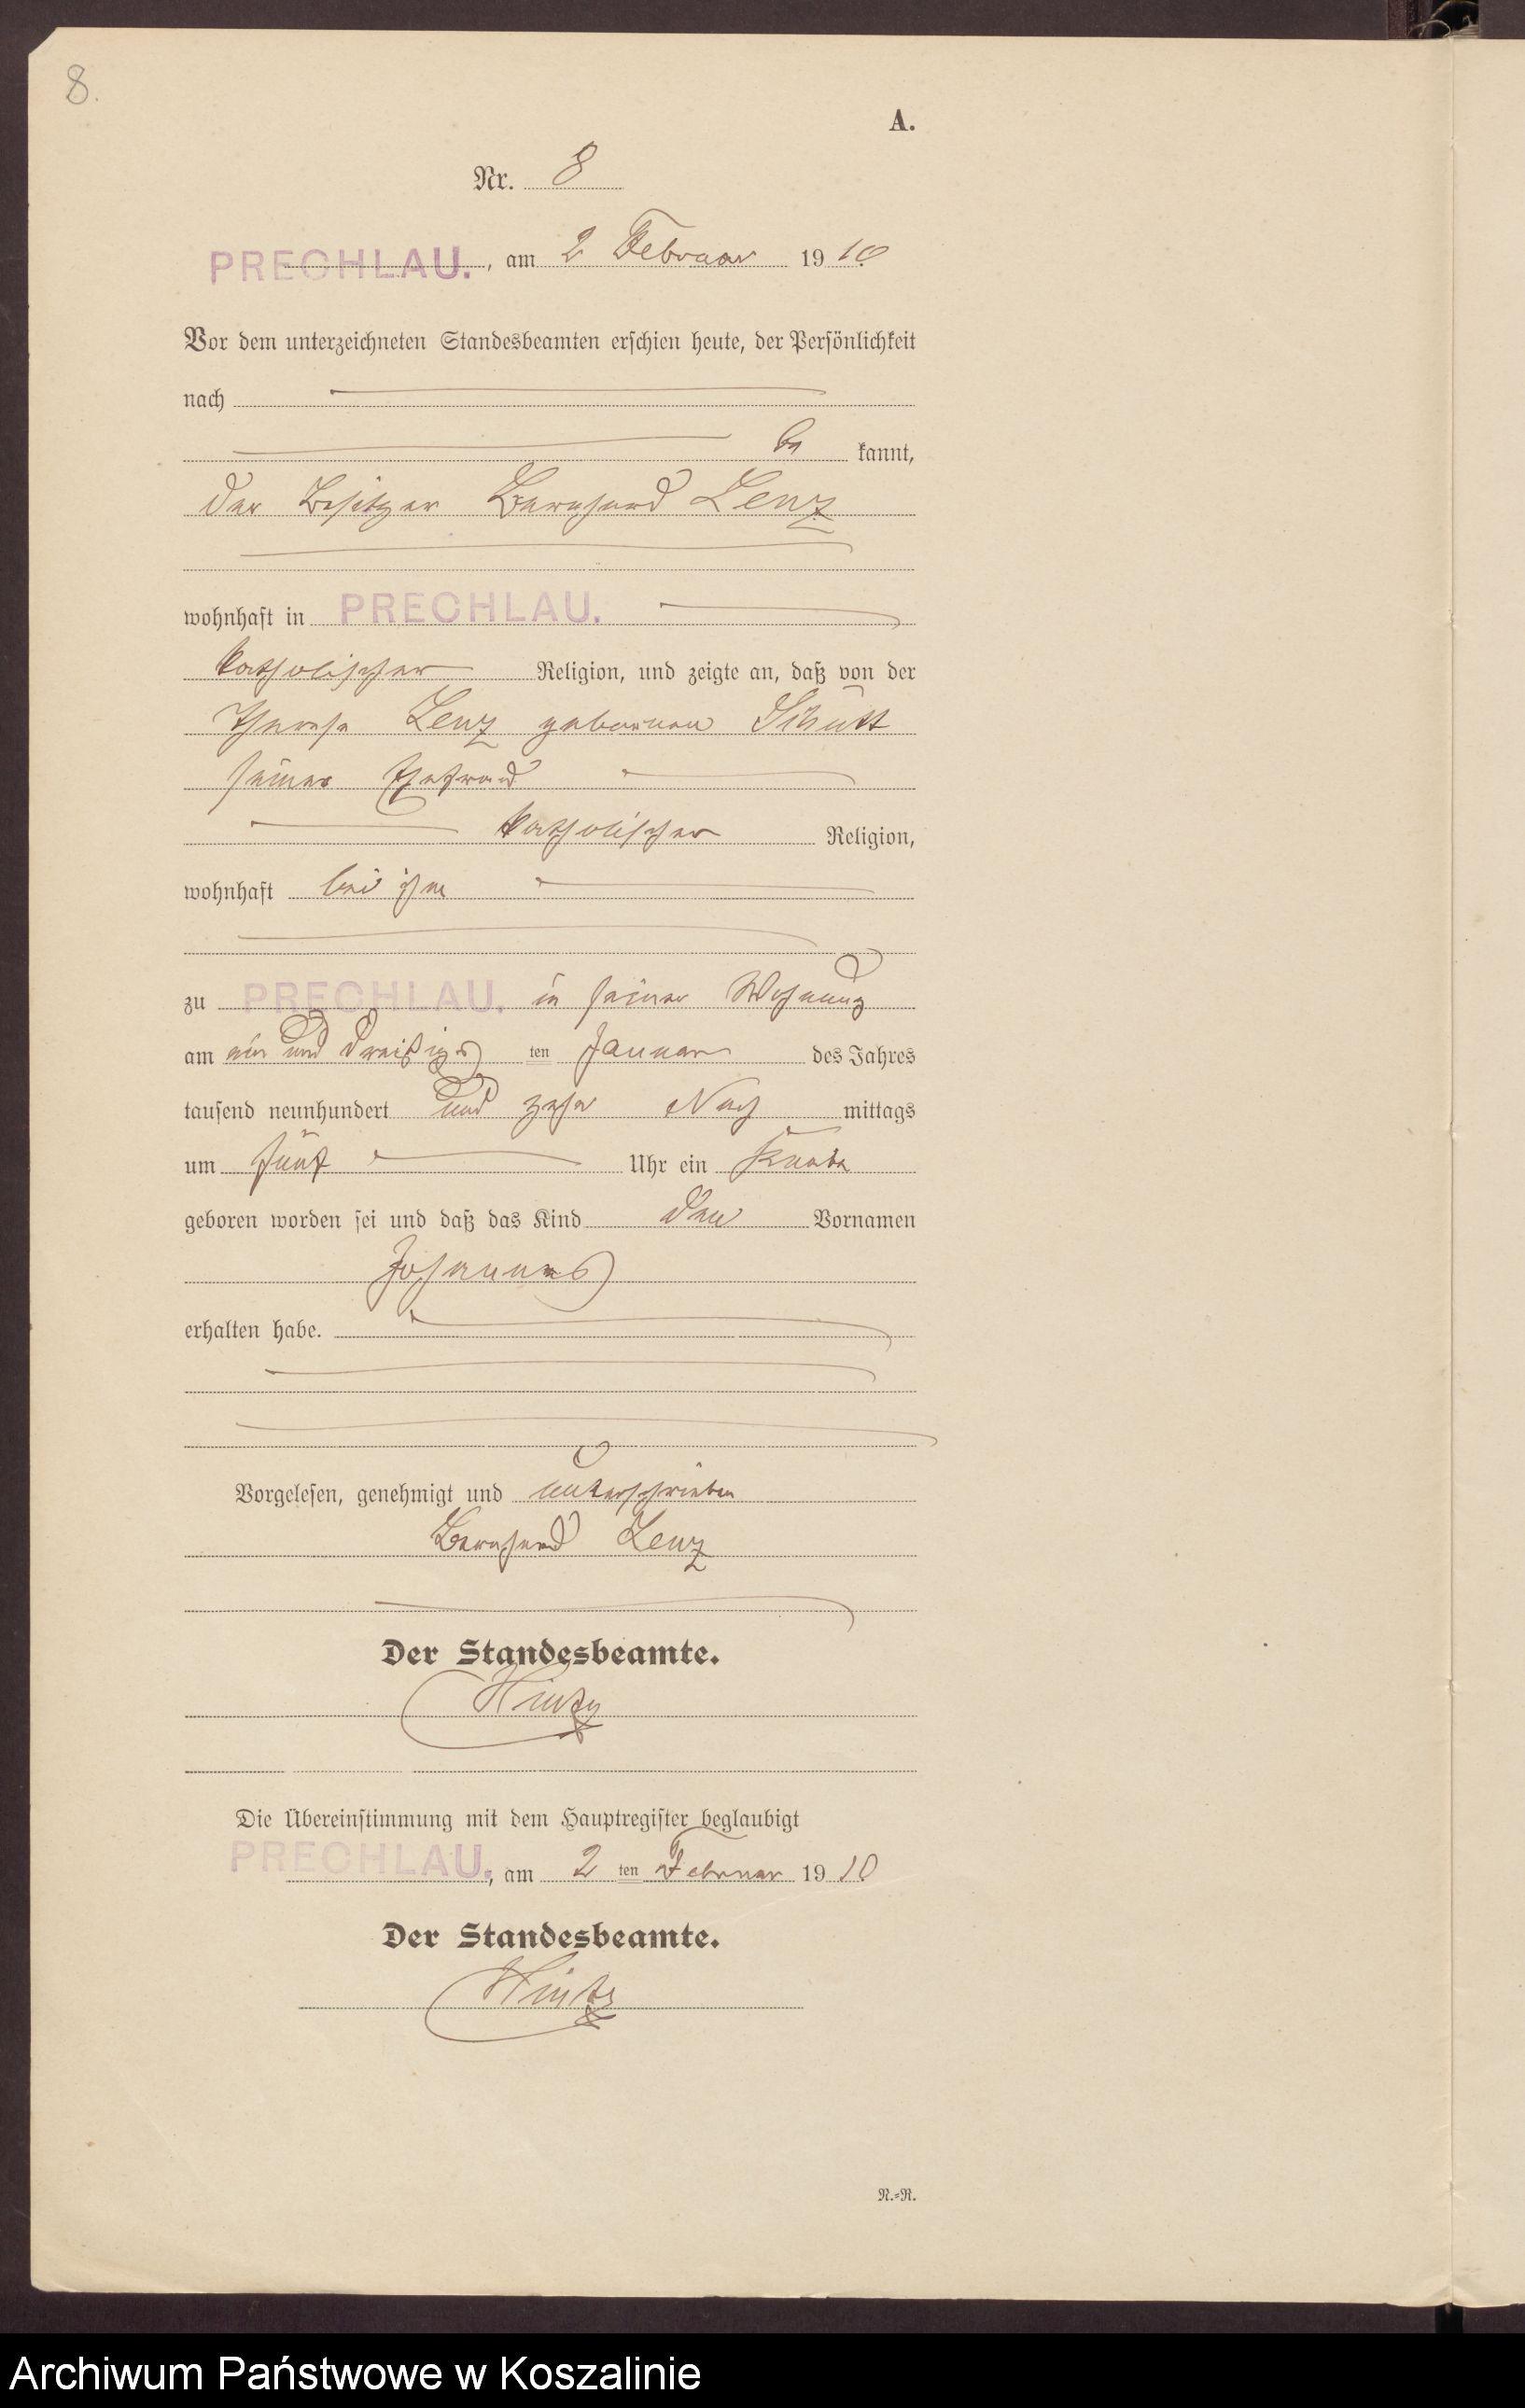 8.
A.
Nr. 8
PRECHLAU., am 2 Februar 1910.
Vor dem unterzeichneten Standesbeamten erschien heute, der Persönlichkeit
nach
be kannt,
der Besitzer Bernhard Lenz
wohnhaft in PRECHLAU.
katholischer Religion, und zeigte an, daß von der
Theresa Lenz geborenen Schütt
seiner Ehefrau
katholischer Religion,
wohnhaft bei ihm
zu PRECHLAU. in seiner Wohnung
am ein und dreißigs ten Januar des Jahres
tausend neunhundert und zehn Nach mittags
um fünf Uhr ein Knabe
geboren worden sei und daß das Kind den Vornamen
Johannes
erhalten habe.
Vorgelesen, genehmigt und unterschrieben
Bernhard Lenz
Der Standesbeamte.
Hintz
Die Übereinstimmung mit dem Hauptregister beglaubigt
PRECHLAU., am 2 ten Februar 1910
Der Standesbeamte.
Hintz
N.=R.
Archiwum Państwowe w Koszalinie